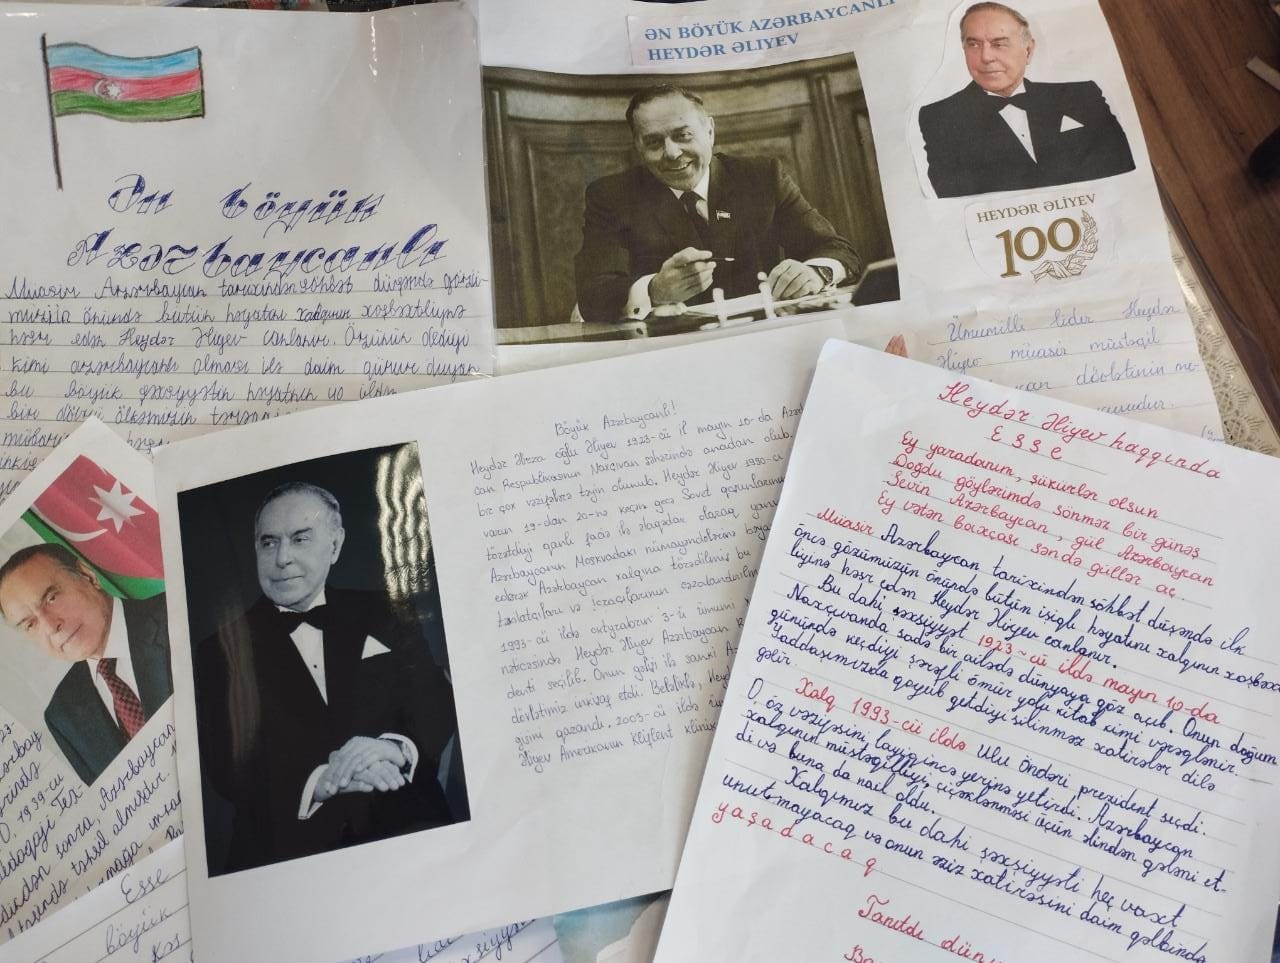 Ən böyük
Azərbaycanlı
Müasir Azərbaycan tarixindən söhbət düşəndə gözü-
müzün önündə bütün həyatını xalqının xoşbəxtliyinə
həsr edən Heydər Əliyev canlanır. Özünün dediyi
kimi azərbaycanlı olması ilə daim qürur duyan
bu böyük şəxsiyyətin həyatının 40 ildən
bir dövrü ölkəmizin tərəqqi
ƏN BÖYÜK AZƏRBAYCANLI
HEYDƏR ƏLİYEV
HEYDƏR ƏLİYEV
100
Ümumilli lider Heydər
Əliyev müasir müstəqil
dövlətinin me-
Böyük Azərbaycanlı!
Heydər Əlirza oğlu Əliyev 1923-cü il mayın 10-da Azər
can Respublikasının Naxçıvan şəhərində anadan olub.
bir çox vəzifələrə təyin olunub. Heydər Əliyev 1990-cı
varın 19-dan 20-nə keçən gecə Sovet qoşunlarının
törətdiyi qanlı faciə ilə əlaqədar olaraq
Azərbaycanın Moskvadakı nümayəndəliyində bəya
edərək Azərbaycan xalqına törədilmiş bu
təşkilatçıları və icraçılarının cəzalandırılm
1993-cü ildə oktyabrın 3-ü ümumi
nəticəsində Heydər Əliyev Azərbaycan
denti seçilib. Onun gəlişi ilə sanki Az
dövlətimiz inkişaf etdi. Beləliklə, Heyd
qazandı. 2003-cü ildə
Əliyev Amerikanın Klivlent klinik
Heydər Əliyev haqqında
Esse
Ey yaradanım, şükürlər olsun
Doğdu göylərimdə sönməz bir günəş
Sevin Azərbaycan, gül Azərbaycan
Ey vətən baxçası səndə güllər aç.
Müasir Azərbaycan tarixindən söhbət düşəndə ilk
öncə gözümüzün önündə bütün işıqlı həyatını xalqının xoşbəxt
liyinə həsr edən Heydər Əliyev canlanır.
Bu dahi şəxsiyyət 1923-cü ildə mayın 10-da
Naxçıvanda sadə bir ailədə dünyaya göz açıb. Onun doğum
günündə keçdiyi şərəfli ömür yolu kitab kimi vərəqlənir.
Yaddaşımızda qoyub getdiyi silinməz xatirələr dilə
gəlir.
Xalq 1993-cü ildə Ulu öndəri prezident seçdi.
O, öz vəzifəsini layiqincə yerinə yetirdi. Azərbaycan
xalqının müstəqilliyi, çiçəklənməsi üçün əlindən gələni et-
di və buna da nail oldu.
Xalqımız bu dahi şəxsiyyəti heç vaxt
unutmayacaq və onun əziz xatirəsini daim qəlbində
yaşadacaq
Tanıtdı dün
O, 1939-cu
sonra, Azərbaycan
təhsil almışdır.
Esse
böyük